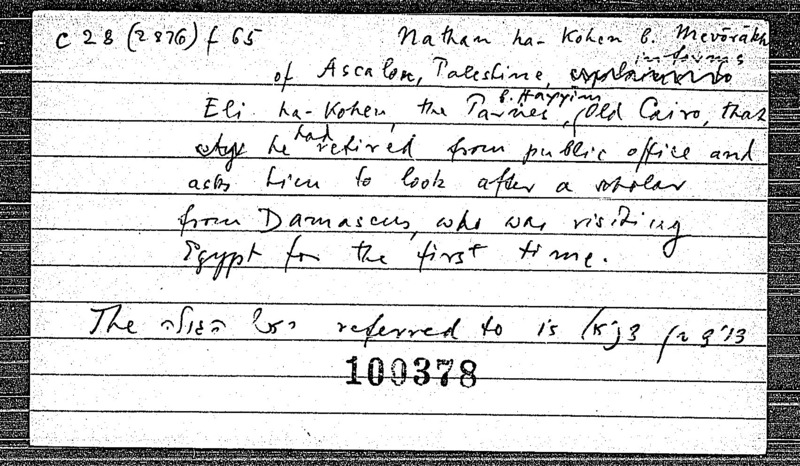 c 28 (2876) f 65 Nathan ha-Kohen b. Mevōrākh
of Ascalon, Palestine, informs
Eli ha-Kohen, b. Hayyim the Parnes, Old Cairo, that
he had retired from public office and
asks him to look after a scholar
from Damascus, who was visiting
Egypt for the first time.
The ראש הגולה referred to is דויד בן דניאל
100378